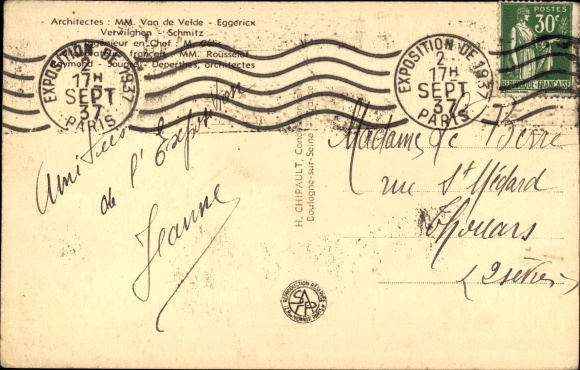 Architectes : MM. Van de Velde - Eggericx
Verwilghen - Schmitz
Ingénieur en Chef : M.
français MM. Rousselot
architectes
EXPOSITION DE 1937
2
17H
SEPT
37
PARIS
EXPOSITION DE 1937
2
17H
SEPT
37
PARIS
POSTES
30c
RÉPUBLIQUE FRANÇAISE
Amitiés
de l'Exposition
Jeanne
H. CHIPAULT,
Boulogne-sur-Seine
Madame de
rue St Médard
Thouars
(2 sèvres)
REPRODUCTION